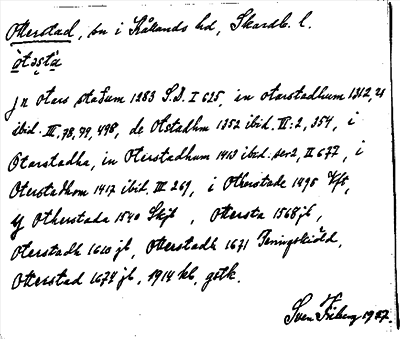 Otterstad, sn i Kållands hd, Skarab. l.
òtəstà
jn otars staðum 1283 S.D. I 625, in otarstadhum 1312, 21
ibid. III, 78, 79, 498, de Otstadhm 1352 ibid. VI:2, 354, i
Otarstadha, in Oterstadhum 1413 ibid. ser 2, II 677, i
Oterstadhom 1417 ibid. III 269, i Otherstade 1495
Otherstada 1540 Skjb, Ottersta 1568 jb,
Oterstadh 1610 jb, Otterstadh 1671 Peringskiöld,
Otterstad 1677 jb, 1914 kb, gstk.
Sven Friberg 1937.